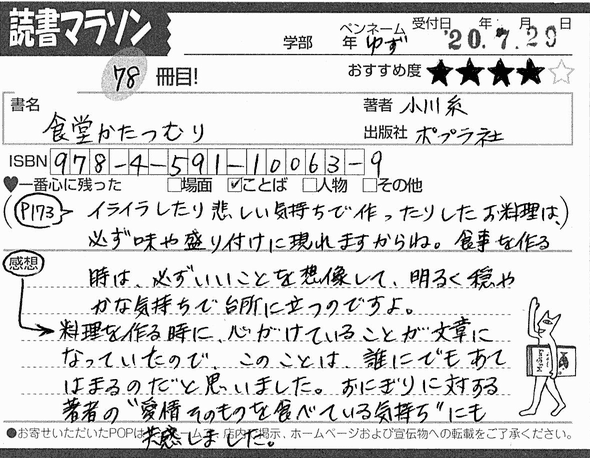 読書マラソン
学部 年 ペンネーム ゆず 受付日 年 月 日 '20.7.29
78 冊目! おすすめ度 ★★★★☆
書名 著者 小川糸
食堂かたつむり 出版社 ポプラ社
ISBN 978-4-591-10063-9
♥一番心に残った □場面 ☑ことば □人物 □その他
(P173> イライラしたり悲しい気持ちで作ったりしたお料理は、)
必ず味や盛り付けに現れますからね。食事を作る
感想 時は、必ずいいことを想像して、明るく穏や
かな気持ちで台所に立つのですよ。
→料理を作る時に、心がけていることが文章に
なっていたので、このことは、誰にでもあて
はまるのだと思いました。おにぎりに対する
著者の"愛情そのものを食べている気持ち"にも
共感しました。
●お寄せいただいたPOPは、店内に掲示、ホームページおよび宣伝物への転載をご了承ください。